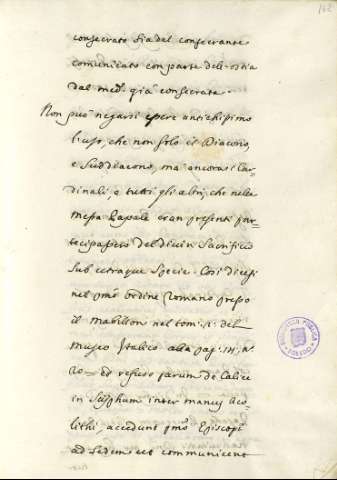 162
consecrato sia dal consecrante
comunicato con parte dell'ostia
dal med.º già consecrata.
Non può negarsi essere antichissimo
l'uso, che non solo il Diacono,
e Suddiacono, ma ancora i Car=
dinali, e tutti gli altri, che nella
messa Papale eran presenti par=
tecipassero del divin Sacrificio
sub utraque specie. Così dicesi
nel p.mo ordine Romano presso
il Mabillon nel tom. 2. del
museo Italico alla pag.
20 et refuso parum de Calice
in Scyphum inter manus Aco=
lithi, accedunt p.mo Episcopi
ad Sedem ut communicent
BIBLIOTECA PUBLICA
TOLEDO